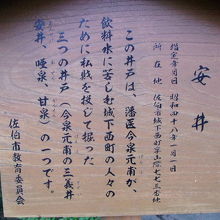 安井
指定年月日 昭和四十八年一月一日
所在地 佐伯市城下西町
この井戸は、藩医今泉元甫が、
飲料水に苦しむ城下西町の人々の
ために私財を投じて掘った
三つの井戸(今泉元甫の三義井
安井、唖泉、甘泉)の一つです。
佐伯市教育委員会